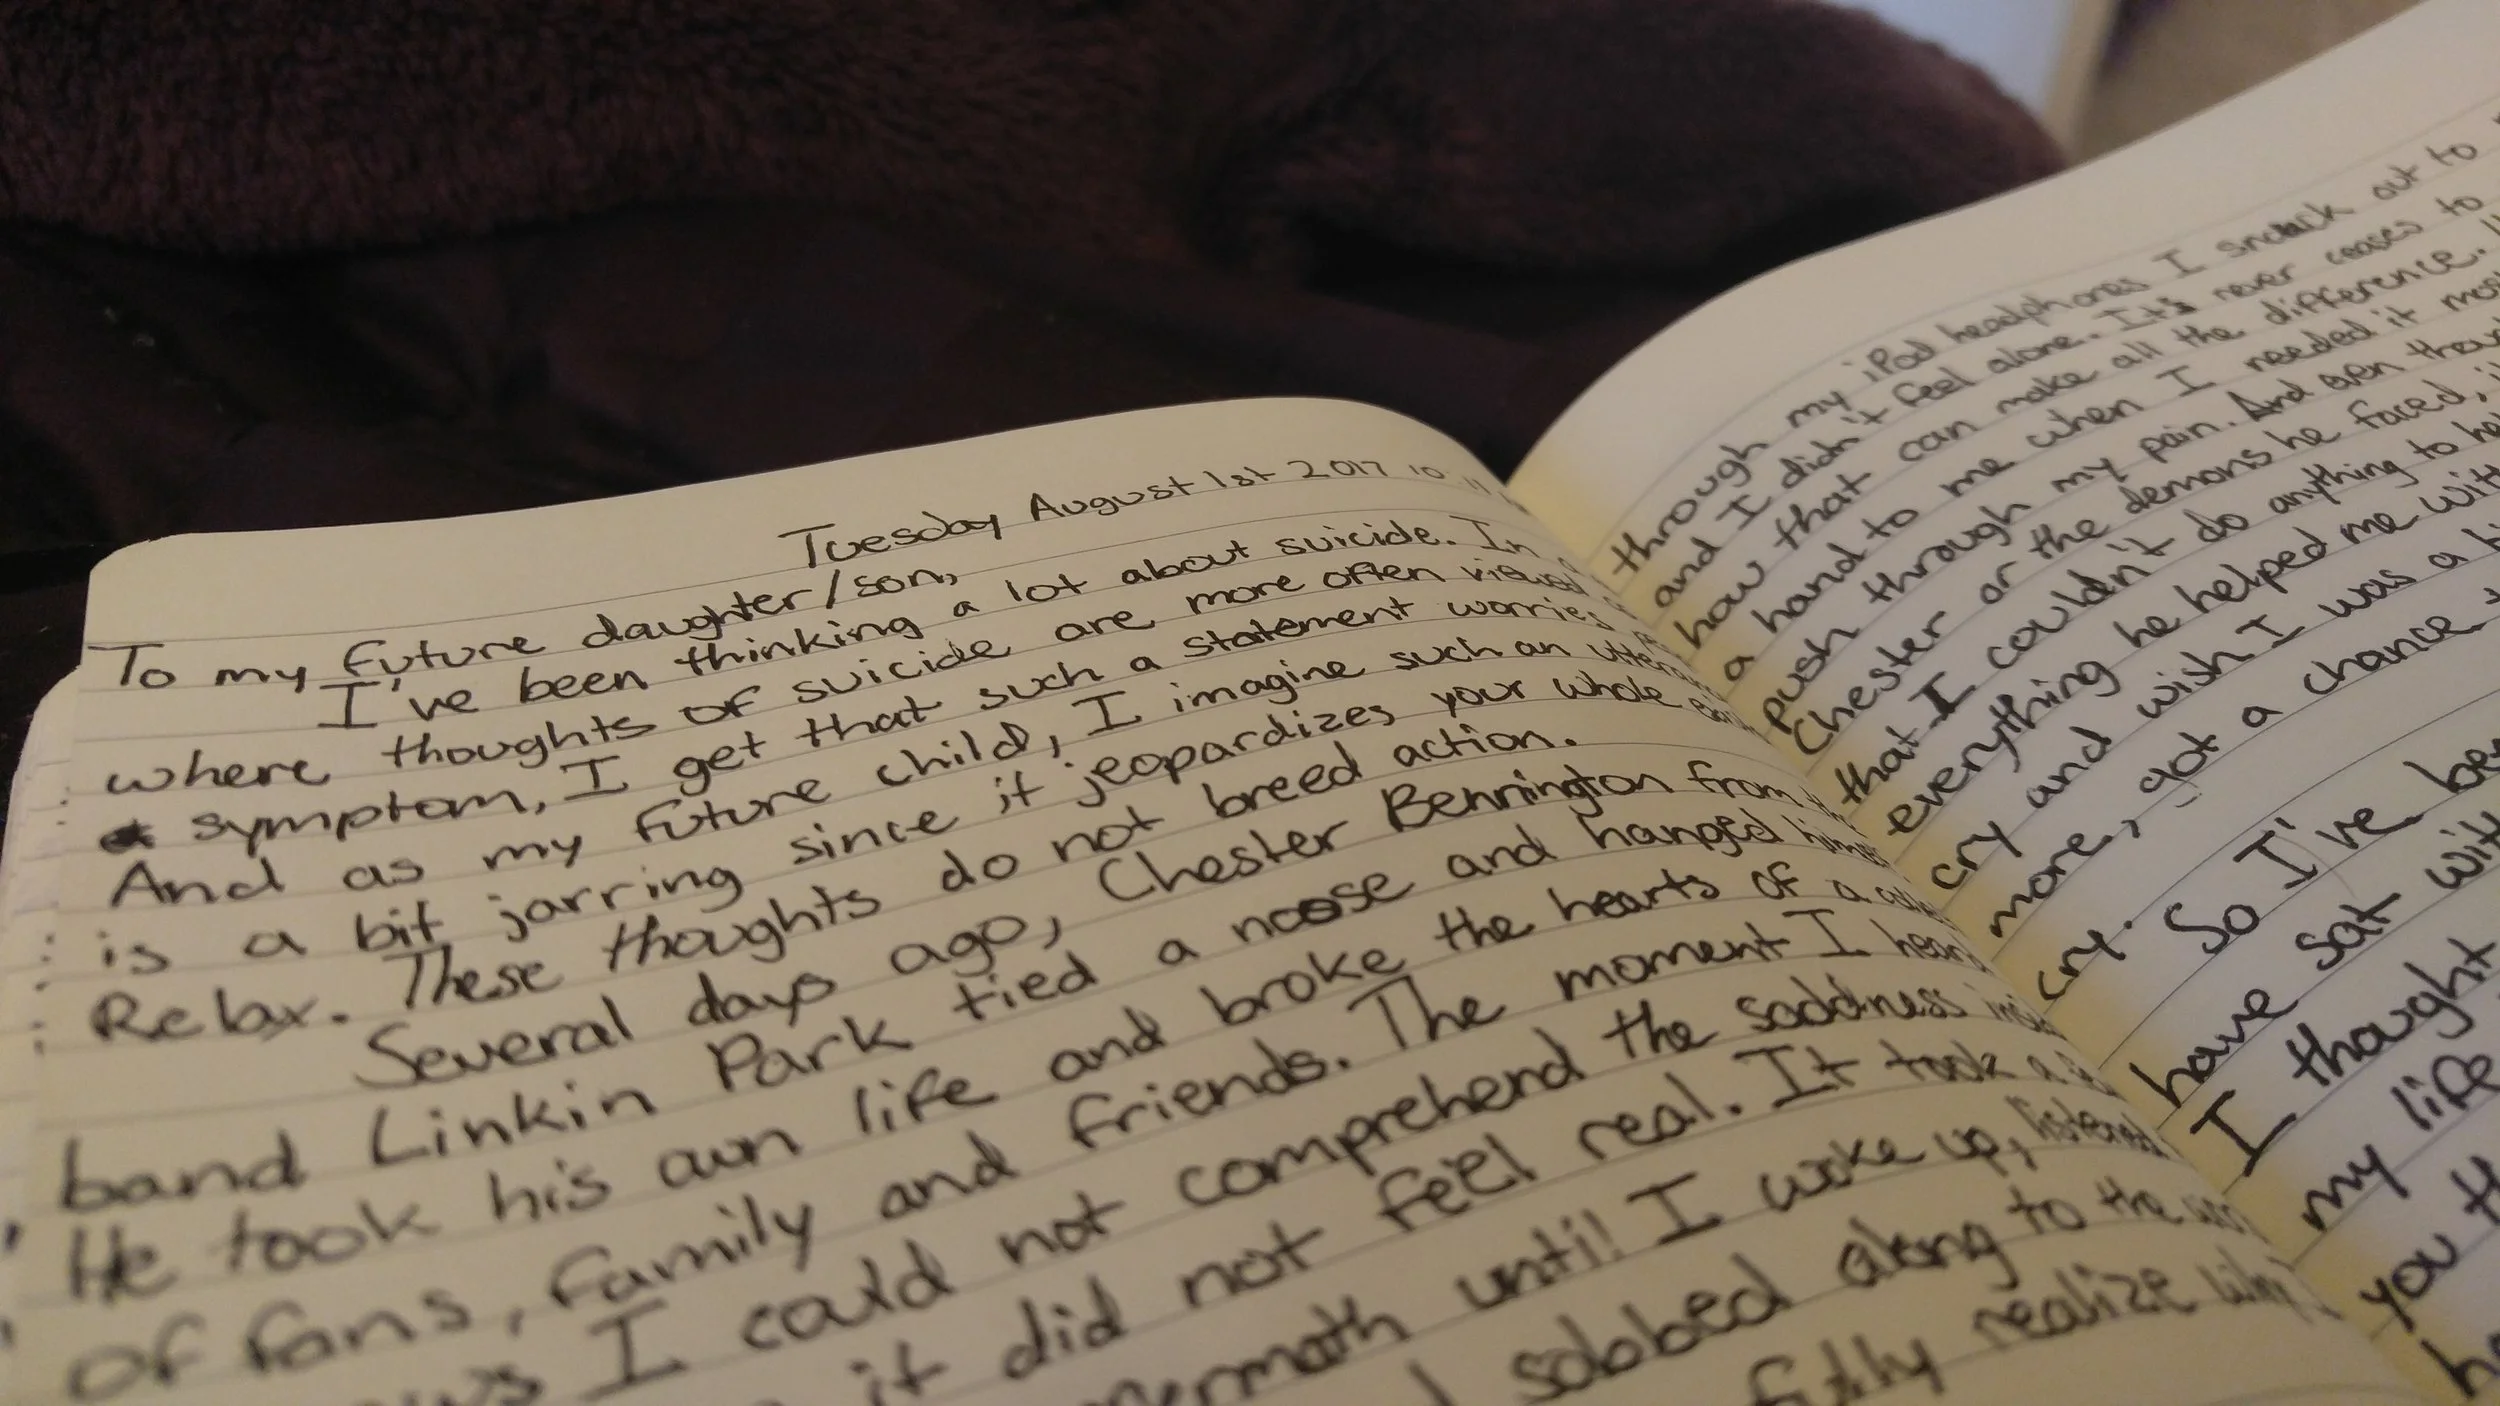 Tuesday August 1st 2017 10
To my future daughter/son,
I've been thinking a lot about suicide. In
where thoughts of suicide are more often viewed
symptom, I get that such a statement worries
And as my future child, I imagine such an
is a bit jarring since it jeopardizes your whole
Relax. These thoughts do not breed action.
Several days ago, Chester Bennington from
band Linkin Park tied a noose and hanged
He took his own life and broke the hearts of a
of fans, family and friends. The moment I
I could not comprehend the saddness
it did not feel real. It took a
until I woke up, listened
I sobbed along to the
fully realize
through my iPod headphones I snuck out to
and I didn't feel alone. Its never ceases to
how that can make all the difference.
a hand to me when I needed it
push through my pain. And even
Chester or the demons he faced,
that I couldn't do anything to
everything he helped me
cry and wish I was a
more, got a chance
cry.
So I've
have sat
I thought
my life
you